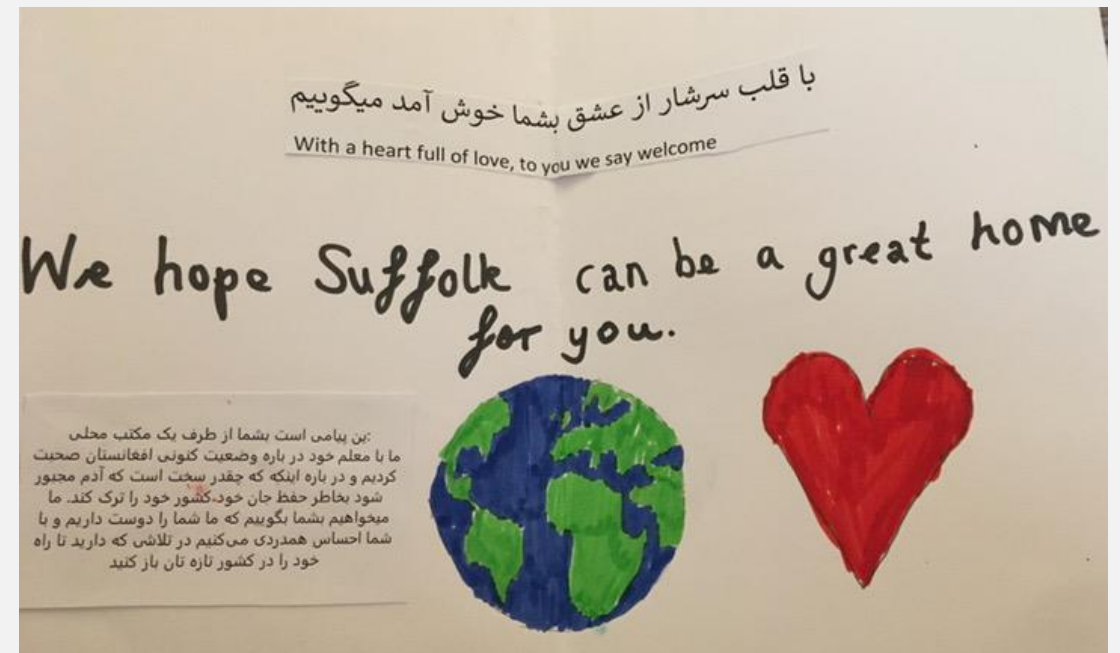 با قلب سرشار از عشق بشما خوش آمد میگوییم
With a heart full of love, to you we say welcome
We hope Suffolk can be a great home
for you.
ین پیامی است بشما از طرف یک مکتب محلی:
ما با معلم خود در باره وضعیت کنونی افغانستان صحبت
کردیم و در باره اینکه که چقدر سخت است که آدم مجبور
شود بخاطر حفظ جان خود،کشور خود را ترک کند. ما
میخواهیم بشما بگوییم که ما شما را دوست داریم و با
شما احساس همدردی می‌کنیم در تلاشی که دارید تا راه
خود را در کشور تازه تان باز کنید